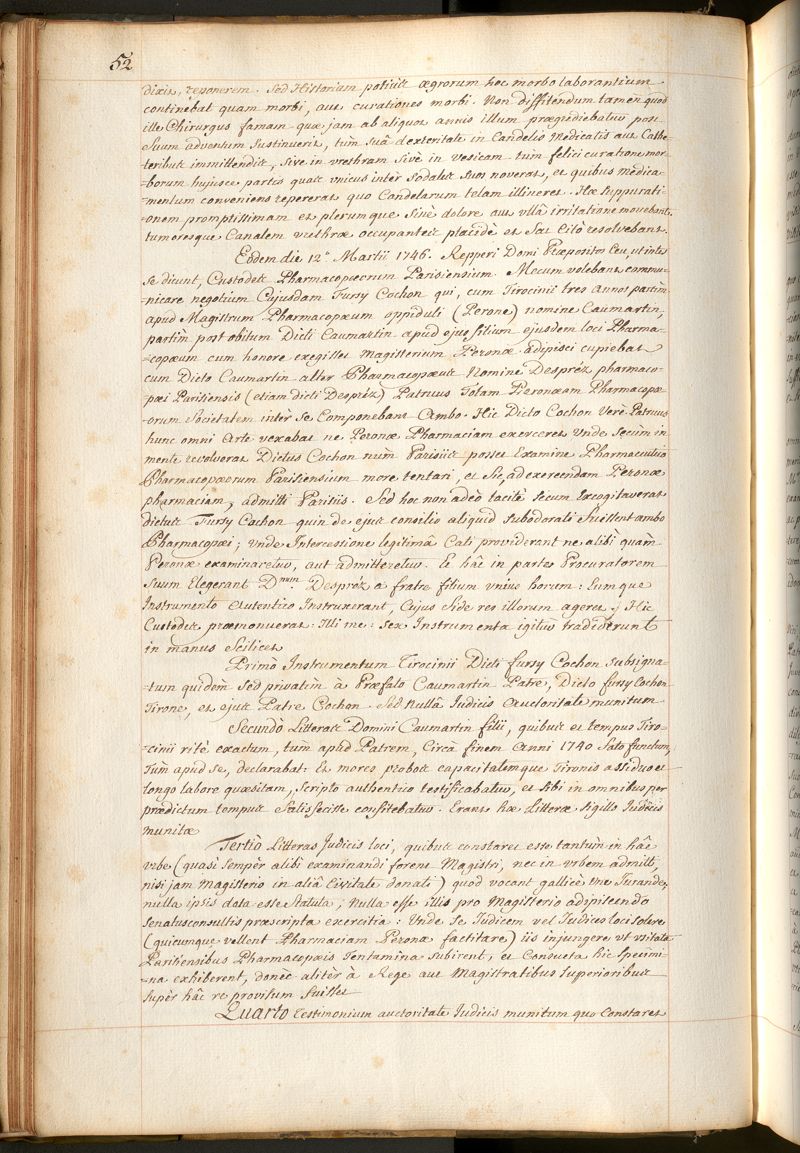 52
dixit, reponerem. Sed Historiam potius ægrorum hoc morbo laborantium
continebat quam morbi, aut curationes morbi. Non diffitendum tamen quod
ille Chirurgus famam quæ jam ab aliquot annis illum prægrediebatur post
Suum adventum Sustinuerit, tum Suâ dexteritate in Candelis Medicatis aut Cathe-
teribus immittendis, Sive in urethram Sive in Vesicam tum felici curatione mor-
borum hujusce partis quos unicus inter Sodales Suos noverat, et quibus medica-
mentum conveniens repererat quo Candelarum telam illineret. Hæ Suppurati-
-onem promptissimam et plerumque Sine dolore aut ullâ irritatione movebant,
tumoresque Canalem urethræ occupantes placide et Sat Citò resolvebant.
Eodem die 12ª Martii 1746. Repperi Domi Præpositos Ceu, ut inter
Se dicunt, Custodes Pharmacopæorum Parisiensium. Mecum volebant commu-
nicare negotium Cujusdam Fursy Cochon qui, cum Tirocinii tres annos partim
apud Magistrum Pharmacopæum oppiduli (Perone) nomine Caumartin,
partim post obitum Dicti Caumartin apud ejus filium ejusdem loci Pharma-
-copæum cum honore exegisset Magisterium Peronæ adipisci cupiebat
cum Dicto Caumartin alter Pharmacopæus Nomine Despréz pharmaco-
pæi Parisiensis (etiam dicti Despréz) Patruus Totam Peronæam Pharmacopæ-
-orum Societatem inter Se Componebant Ambo. Hic Dicto Cochon Verè Patruus
hunc omni Arte vexabat ne Peronæ Pharmaciam exerceret Unde Secum in
mente revolverat Dictus Cochon num Parisiis posset Examine Pharmaceutico
Pharmacopæorum Parisiensium more tentari, et Sic, ad exercendam Peronæ
pharmaciam, admitti Parisiis. Sed hoc non adeò tacitè Secum Excogitaverat
dictus Fursy Cochon quin de ejus consilio aliquid Subodorati Fuissent ambo
Pharmacopæi; Unde Intercessione legitimâ Cati providerant ne alibi quàm
Peronæ examinaretur, aut admitteretur. Et hâc in parte Procuratorem
Suum Elegerant Dnum Despréz a fratre filium unius horum: Eumque
Instrumento Autentico Instruxerant, Cujus Fide res illorum ageret; Hic
Custodes præmonuerat: Illi me: Sex Instrumenta igitur tradiderunt
in manus Scilicet
Primò Instrumentum Tirocinii Dicti fursy Cochon Subsigna-
tum quidem Sed privatim à Præfato Caumartin Patre, Dicto fursy Cochon
Tirone, et ejus Patre Cochon. Sed Nullâ Judicis Auctoritate munitum
Secundò Litteras Domini Caumartin filii, quibus et tempus Tiro-
-cinii ritè exactum, tum apud Patrem, Circà finem Anni 1740 Fato functum,
Tum apud Se, declarabat: Et mores probos capacitatemque Tironis assiduo et
longo labore quæsitam, Scripto authentico testificabatur, et Sibi in omnibus per
prædictum tempus Satisfecisse confitebatur. Erant hæ Litteræ Sigillo Judicis
munitæ
Tertiò Litteras Judicis loci, quibus constaret esse tantùm in hâc
urbe (quasi Semper alibi examinandi forent Magistri, nec in urbem admitti,
nisi jam Magisterio in aliâ Civitate donati) quod vocant gallicè une Jurande,
nulla ipsis data esse Statuta; Nulla esse illis pro Magisterio adipiscendo
Senatusconsultis præscripta exercitia: Unde Se Judicem vel Judices loci Solere
(quicumque vellent Pharmaciam Peronæ factitare) iis injungere ut usitata
Parisiensibus Pharmacopæis Tentamina Subirent, et Consueta hic Specimi-
-na exhiberent, donèc alitèr à Rege aut Magistratibus Superioribus
Supèr hâc re provisum Fuisset
Quarto Testimonium auctoritate Judicis munitum quo Constaret